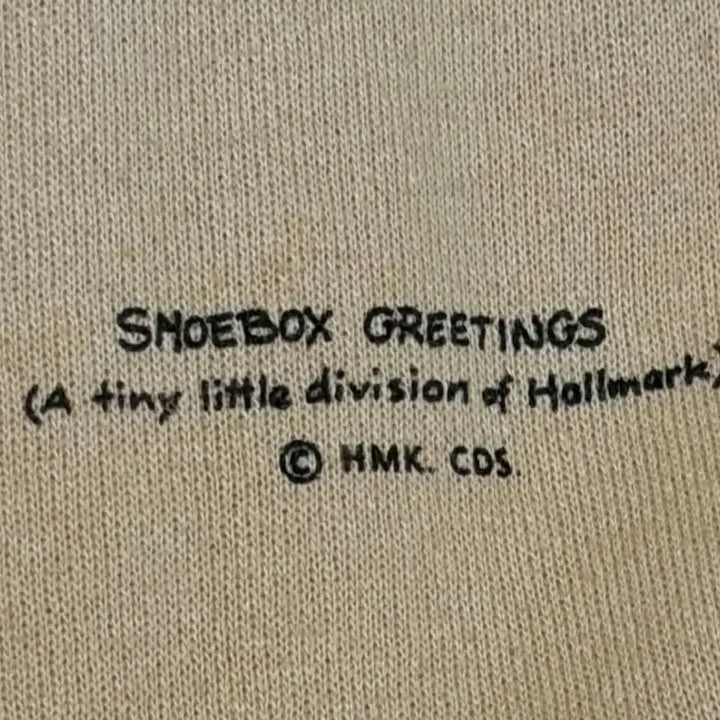 SHOEBOX GREETINGS
(A tiny little division of Hallmark)
© HMK. CDS.